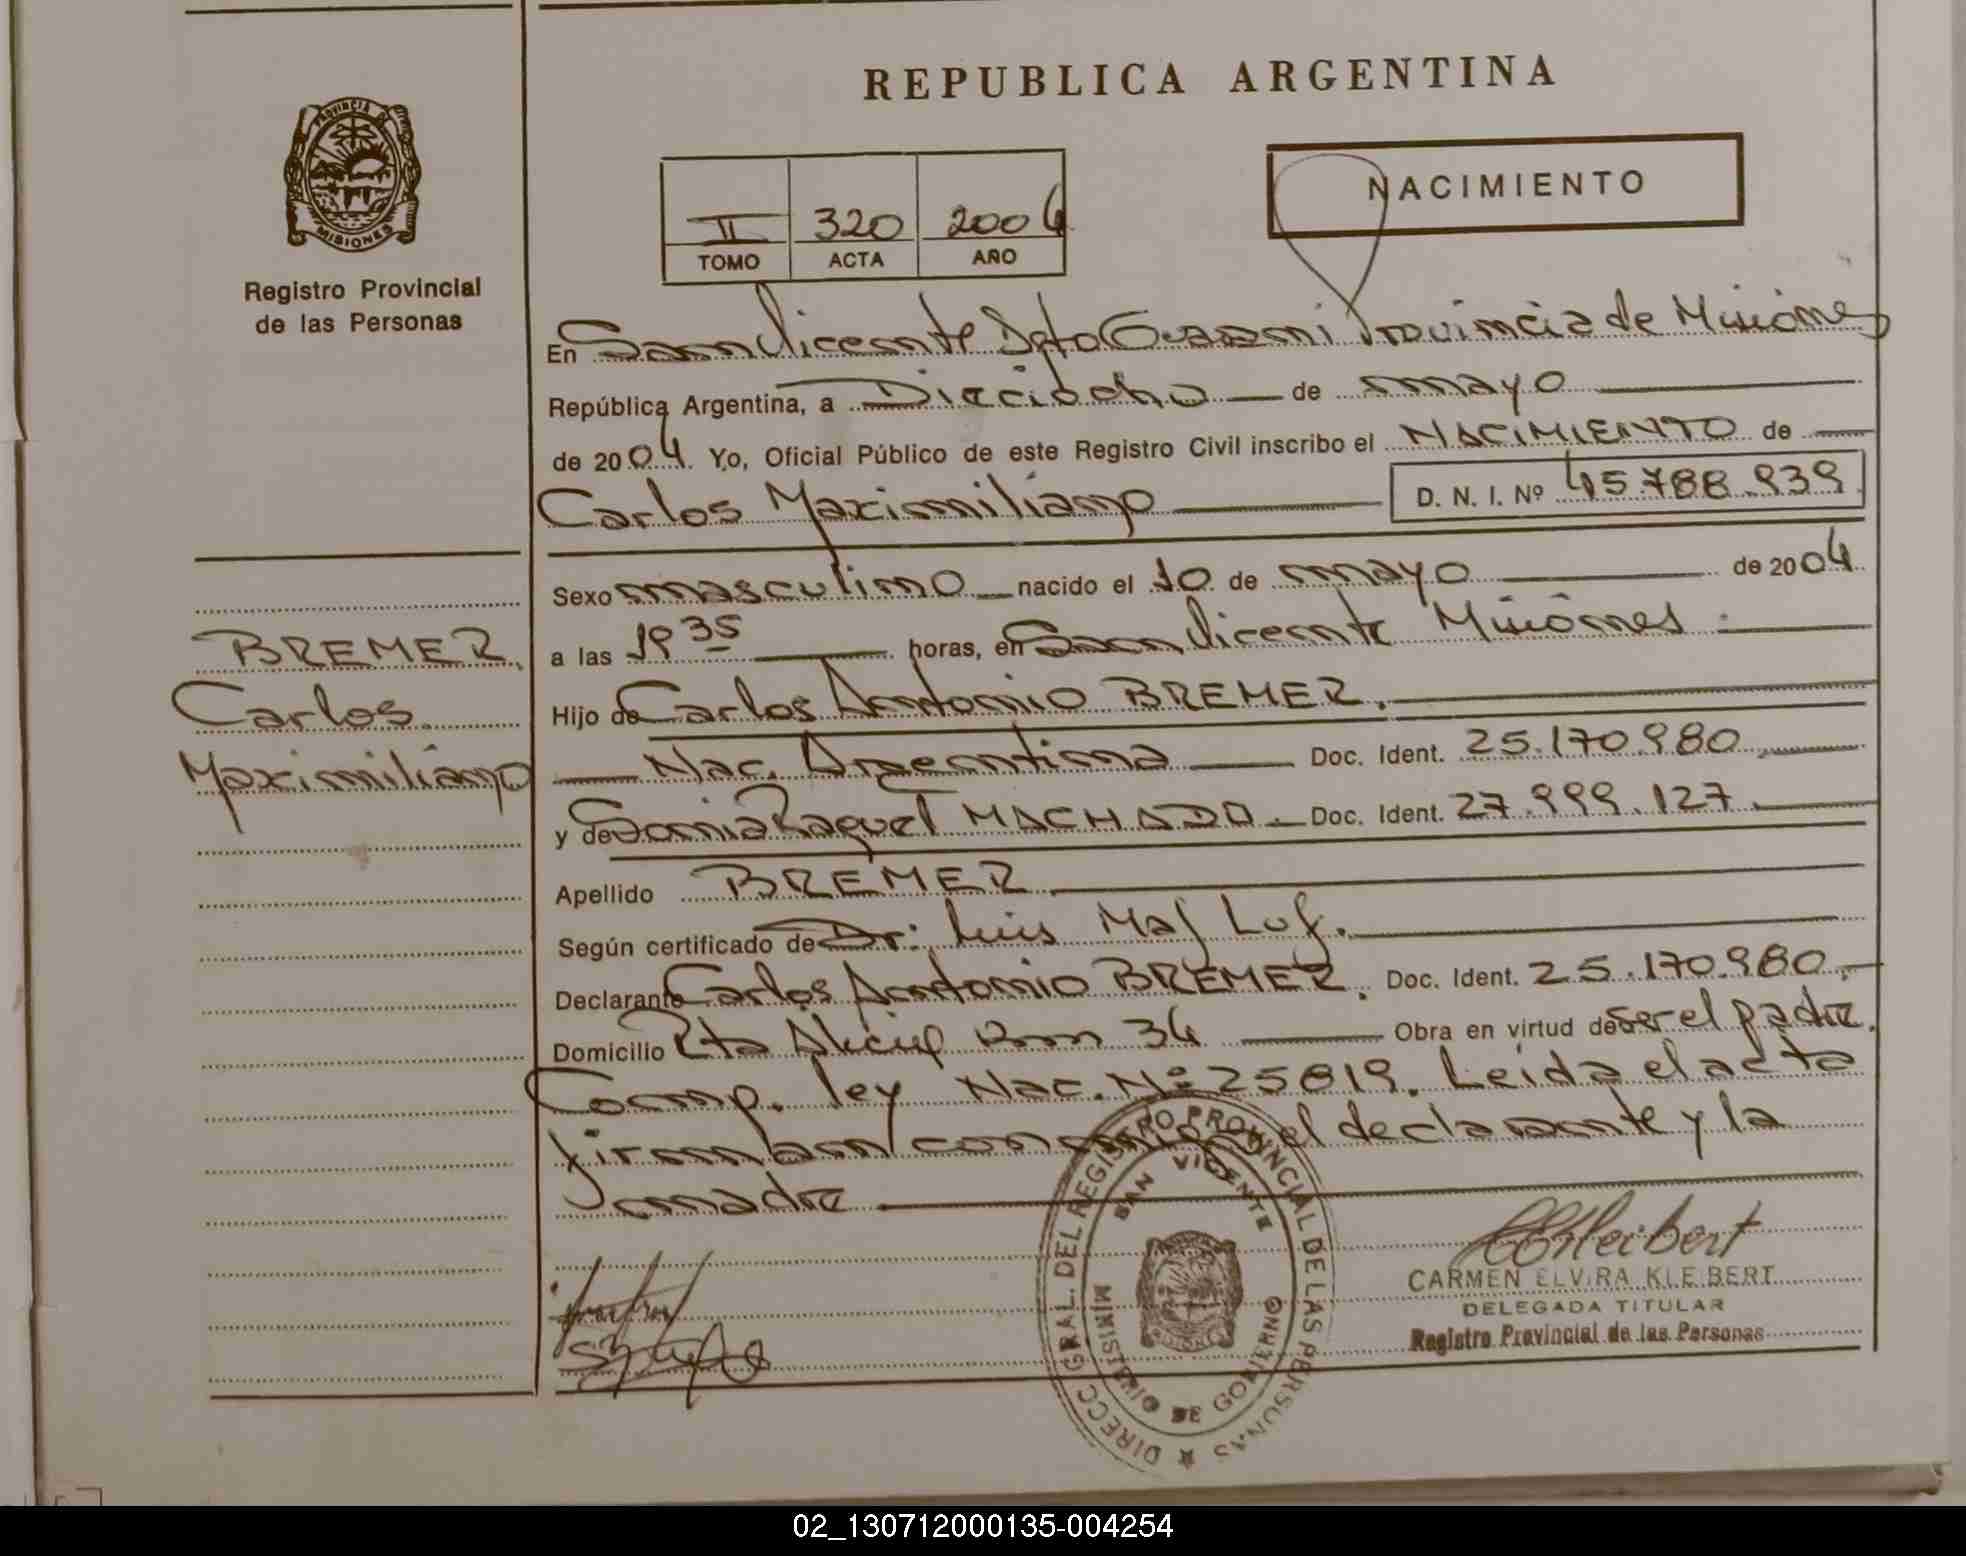 REPUBLICA ARGENTINA
PROVINCIA DE
MISIONES
Registro Provincial
de las Personas
II 320 2004
TOMO ACTA AÑO
NACIMIENTO
En San Vicente Dpto Guarani Provincia de Misiones
República Argentina, a Dieciocho de mayo
de 2004. Yo, Oficial Público de este Registro Civil inscribo el NACIMIENTO de
Carlos Maximiliano D. N. I. Nº 45.788.939
Sexo masculino nacido el 10 de mayo de 2004
a las 19 35 horas, en San Vicente Misiones.
Hijo de Carlos Antonio BREMER.
Nac. Argentina Doc. Ident. 25.170.980
y de Sonia Raquel MACHADO. Doc. Ident. 27.999.127.
Apellido BREMER
Según certificado de Dr: Luis
Declarante Carlos Antonio BREMER. Doc. Ident. 25.170.980.
Domicilio Km 34 Obra en virtud de ser el padre.
Comp. ley Nac. Nº 25819. Leida el acta
firman conmigo el declarante y la
madre
BREMER,
Carlos
Maximiliano
DIRECC. GRAL. DEL REGISTRO PROVINCIAL DE LAS PERSONAS
SAN VICENTE
MINISTERIO DE GOBIERNO
CEKleibert
CARMEN ELVIRA KLEIBERT
DELEGADA TITULAR
Registro Provincial de las Personas
02_130712000135-004254